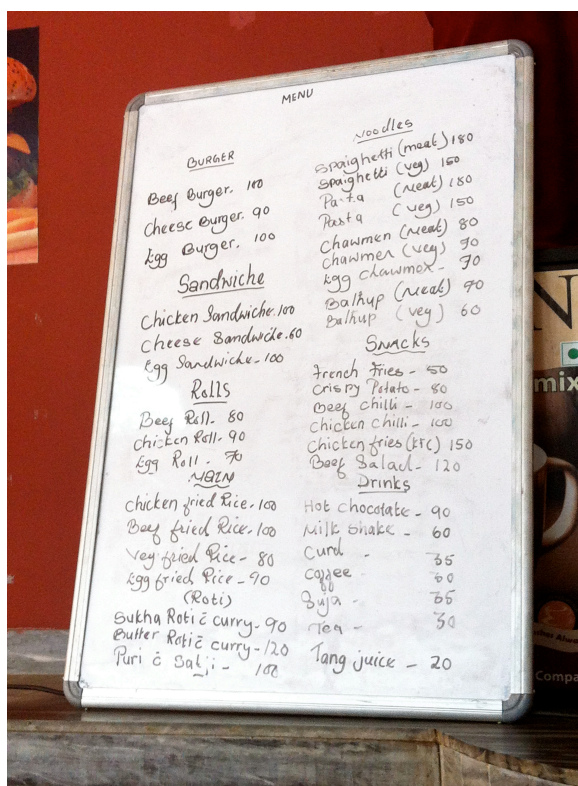 MENU
BURGER
Beef Burger. 100
Cheese Burger. 90
Egg Burger. 100
Sandwiche
Chicken Sandwiche. 100
Cheese Sandwiche. 60
Egg Sandwiche - 100
Rolls
Beef Roll. 80
Chicken Roll. 90
Egg Roll - 70
MAIN
Chicken fried Rice. 100
Beef fried Rice. 100
Veg fried Rice - 80
Egg fried Rice - 90
(Roti)
Sukha Roti c̄ curry - 90
Butter Roti c̄ curry - 120
Puri c̄ - 100
Noodles
Spaighetti (meat) 180
Spaighetti (veg) 150
Pasta (meat) 180
Pasta (veg) 150
Chawmen (meat) 80
Chawmen (veg) 70
Egg Chawmen - 70
Balhup (meat) 70
Balhup (veg) 60
Snacks
French Fries - 50
Crispy Potato - 80
Beef Chilli - 100
Chicken Chilli - 100
Chicken fries (KFC) 150
Beef Salad - 120
Drinks
Hot Chocolate - 90
Milk Shake - 60
Curd - 35
Coffee -
Suja - 35
Tea - 30
Tang juice - 20
N
mix
Compa